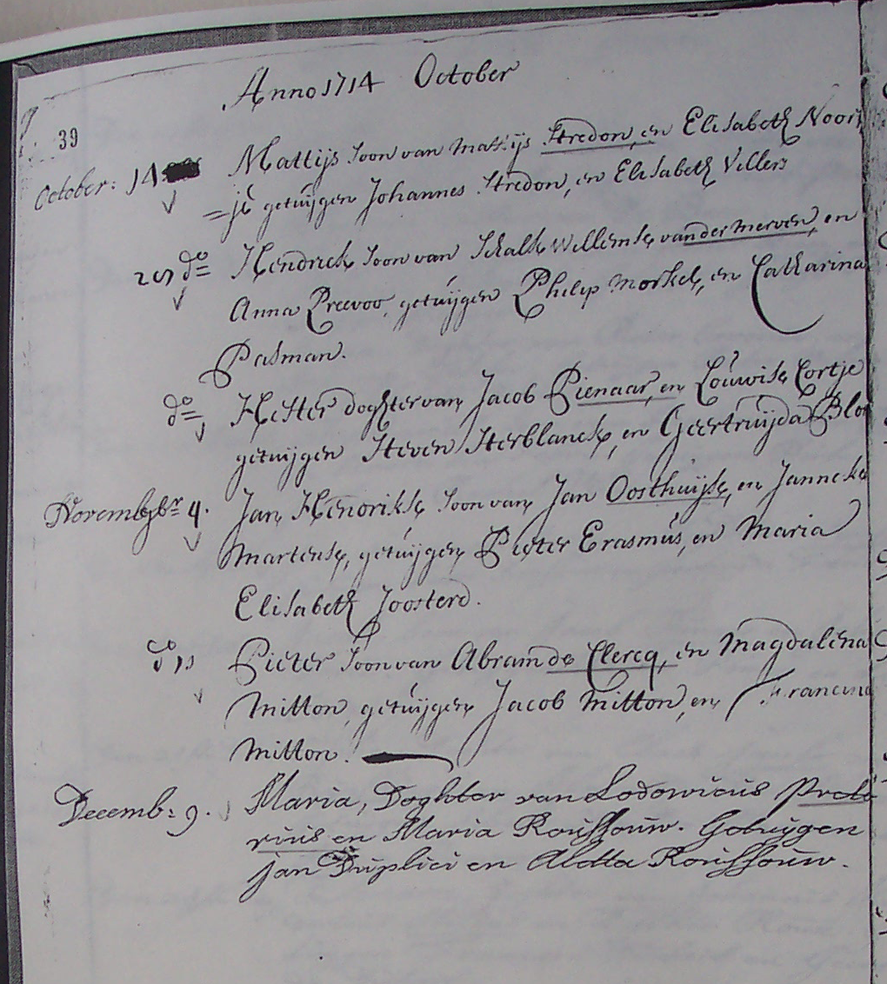 Anno 1714 October
39
October: 14 Mattijs Soon van Mattijs Stredon, en Elisabeth Noort
=jé getuijgen Johannes Stredon, en Elisabeth Villers
do= Hendrick Soon van Schalk Willemse vander merven, en
Anna Preevoo, getuijgen Philip Morkel, en Catharina
Pasman.
do= Hester doghter van Jacob Pienaar, en Louwise Cortje
getuijgen Steven Sterblanck, en Geertruijda Blo
Novembr= 4. Jan Hendrikse Soon van Jan Oosthuijse, en Janneke
Martense, getuijgen Pieter Erasmus, en Maria
Elisabeth Joosterd.
do Pieter Soon van Abram de Clercq, en Magdalena
Mitton, getuijgen Jacob Mitton, en Francina
Mitton.
Decemb: 9. Maria, Doghter van Lodowicus Preto
rius en Maria Roussouw. Getuijgen
jan Duplici en Aletta Roussouw.